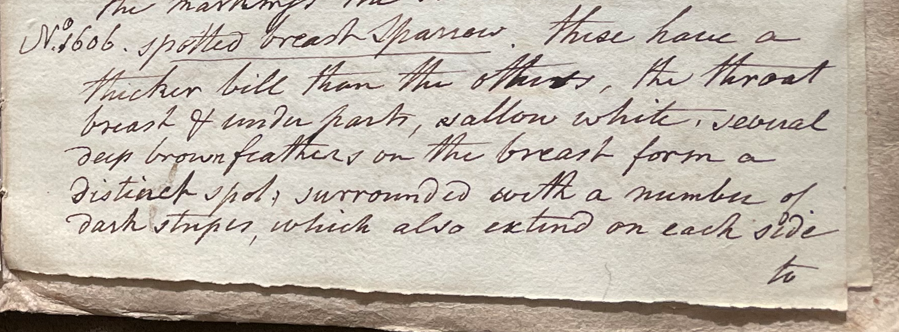 the markings the
No. 1606. spotted breast Sparrow. these have a
thicker bill than the others, the throat
breast & under parts, sallow white, several
deep brown feathers on the breast form a
distinct spot; surrounded with a number of
dark stripes, which also extend on each side
to